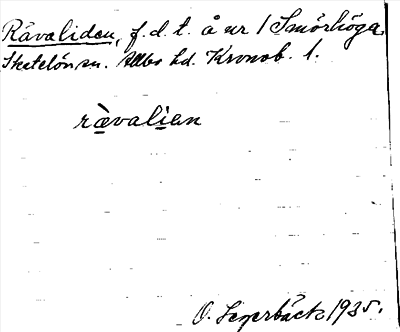 Rävaliden, f.d.t. å nr 1 Smörhöga
Skatelöv sn. Allbo hd. Kronob. l.
rävalien
O. Segerbäck 1935.